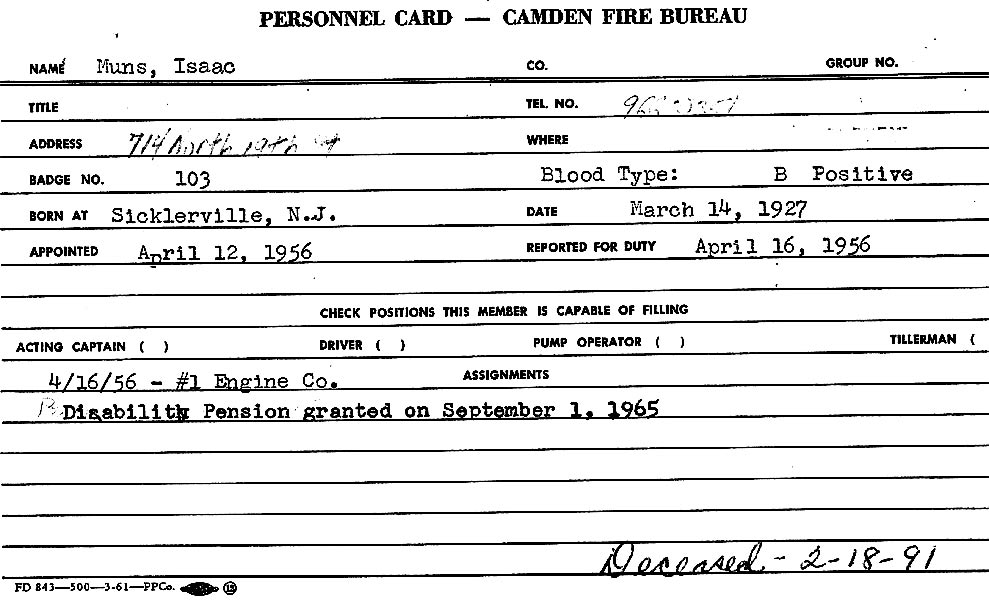 PERSONNEL CARD — CAMDEN FIRE BUREAU
NAME Muns, Isaac CO. GROUP NO.
TITLE TEL. NO.
ADDRESS 714 North 19th St WHERE
BADGE NO. 103 Blood Type: B Positive
BORN AT Sicklerville, N.J. DATE March 14, 1927
APPOINTED April 12, 1956 REPORTED FOR DUTY April 16, 1956
CHECK POSITIONS THIS MEMBER IS CAPABLE OF FILLING
ACTING CAPTAIN ( ) DRIVER ( ) PUMP OPERATOR ( ) TILLERMAN (
4/16/56 - #1 Engine Co. ASSIGNMENTS
Disability Pension granted on September 1, 1965
Deceased - 2-18-91
FD 843—500—3-61—PPCo.